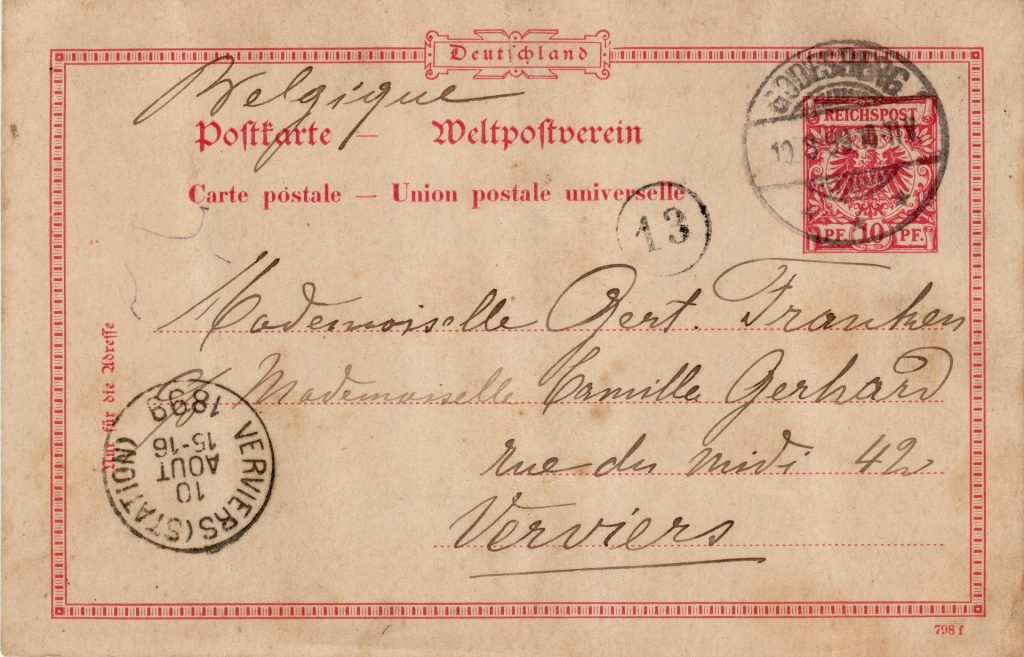 Deutschland
Belgique
Postkarte — Weltpostverein
Carte postale — Union postale universelle
GODESBERG
REICHSPOST
10 PF. PF.
13
Mademoiselle Gert. Franken
Mademoiselle Camille Gerhard
rue du midi 42
Verviers
Nur für die Adresse
VERVIERS (STATION)
10
AOUT
15-16
1899
798 f